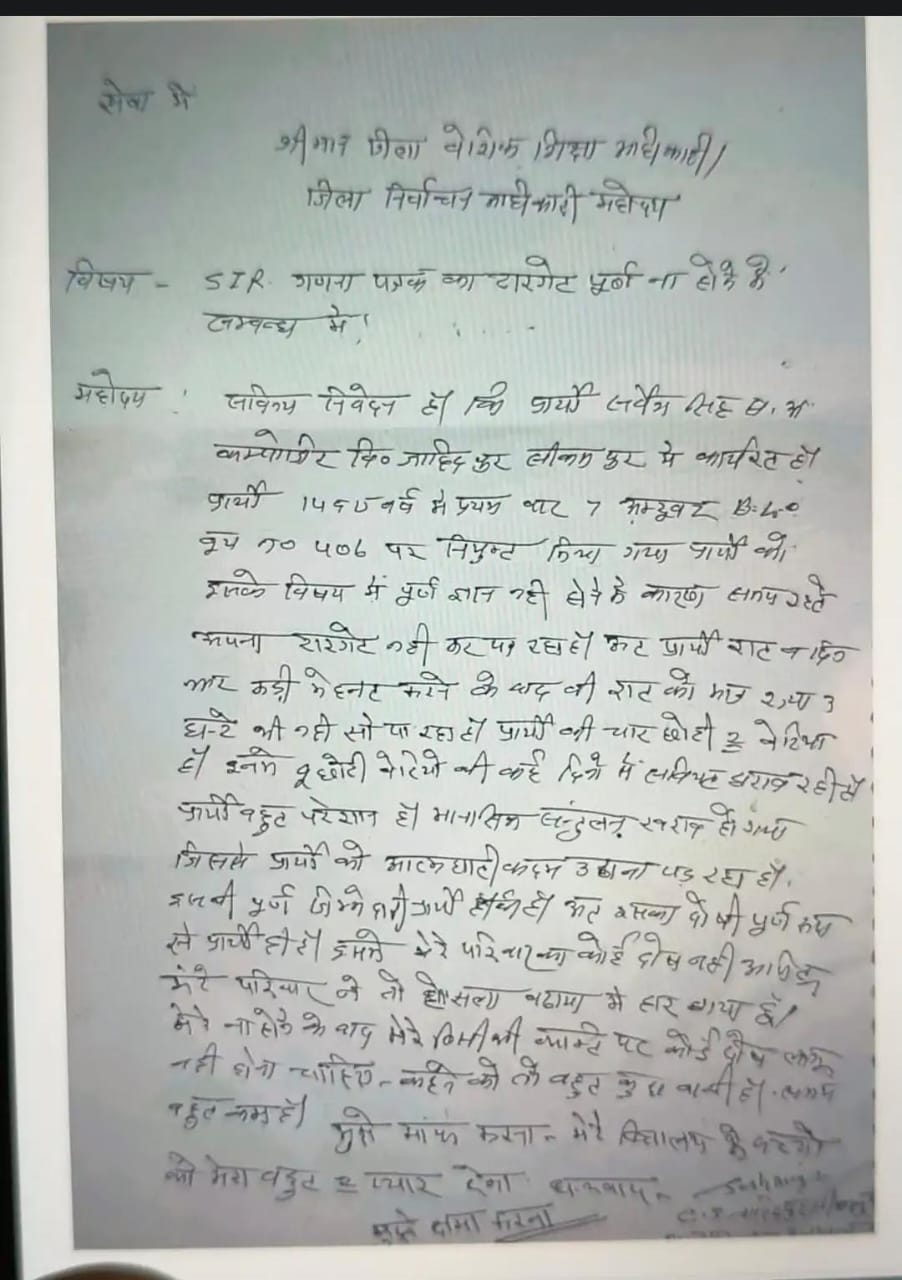 सेवा मे
श्रीमान जिला बेसिक शिक्षा अधिकारी/
जिला निर्वाचन अधिकारी महोदय
विषय - SIR. गणना पत्रक का टारगेट पूर्ण ना होने के
सम्बन्ध मे!
महोदय, सविनय निवेदन है कि प्रार्थी सर्वेश सिंह स. अ.
कम्पोजिट वि० जाहिदपुर सीकमपुर मे कार्यरत है।
प्रार्थी को वर्ष मे प्रथम बार 7 अक्टूबर B.L.O
बूथ न० 406 पर नियुक्त किया गया प्रार्थी को
इसके विषय में पूर्ण ज्ञान नही होने के कारण समय रहते
अपना टारगेट नही कर पा रहा है। अतः प्रार्थी रात व दिन
कडी मेहनत करने के बाद भी रात को मात्र 2 या 3
घन्टे भी नही सो पा रहा है। प्रार्थी की चार छोटी 2 बेटिया
है। इनमे 2 छोटी बेटियो की कई दिनो से तबियत खराब रही है
प्रार्थी बहुत परेशान है। मानसिक संतुलन खराब हो गया
जिससे प्रार्थी को आत्मघाती कदम उठाना पड़ रहा है।
इसकी पूर्ण जिम्मेदारी प्रार्थी की है। अतः इसका दोषी पूर्ण रूप
से प्रार्थी ही है। इसमे मेरे परिवार का कोई दोष नही अपितु
मेरे परिवार ने तो होसला बढाया मे हार गया हूँ।
मेरे ना होने के बाद मेरे किसी भी व्यक्ति पर कोई दोष लागू
नही होना चाहिए - कहने को तो बहुत कुछ बाकी है। समय
बहुत कम है।
मुझे माफ करना - मेरे विद्यालय के बच्चो
को मेरा बहुत 2 प्यार देना धन्यवाद -
मुझे क्षमा करना